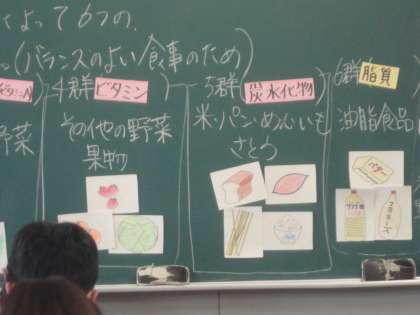 よって6つの、
(バランスのよい食事のため)
4群 ビタミン
その他の野菜
果物
5群 炭水化物
米・パン・めん・いも
さとう
6群 脂質
油脂食品
野菜
バター
マヨネーズ